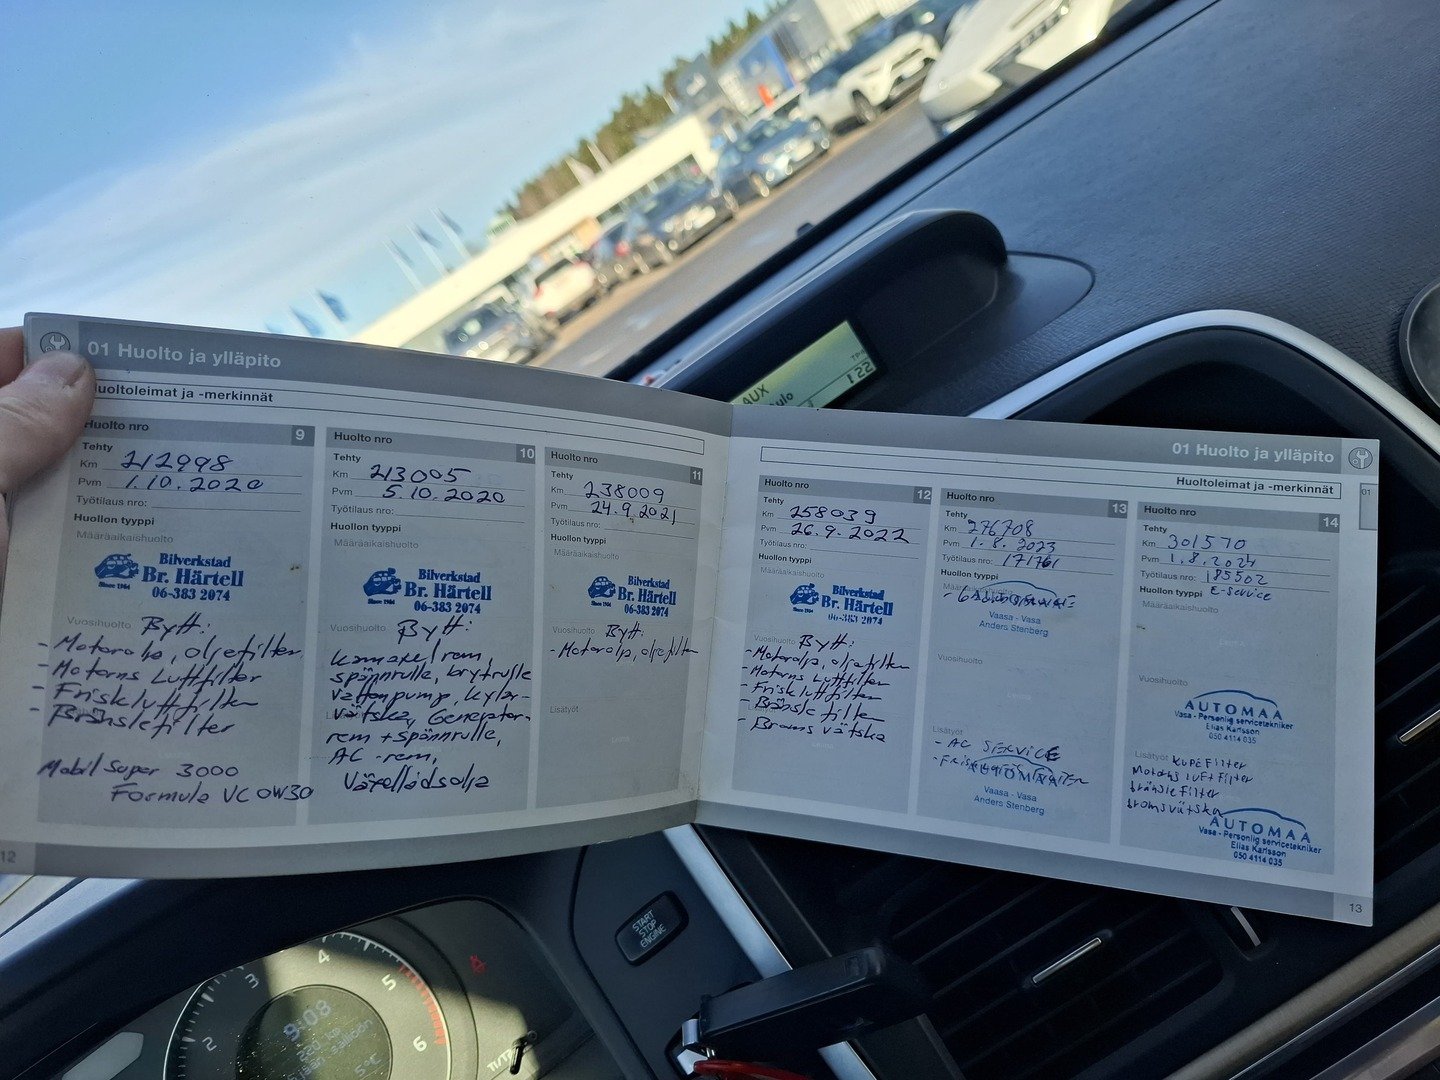 01 Huolto ja ylläpito
Huoltoleimat ja -merkinnät
Huolto nro 9
Tehty
Km 212998
Pvm 1.10.2020
Työtilaus nro:
Huollon tyyppi
Määräaikaishuolto
Bilverkstad
Br. Härtell
Since 1964
06-383 2074
Vuosihuolto Bytt:
- Motorolja, oljefilter
- Motorns Luftfilter
- Friskluftfilter
- Bränslefilter
Mobil Super 3000
Formula VC 0W30
12
Huolto nro 10
Tehty
Km 213005
Pvm 5.10.2020
Työtilaus nro:
Huollon tyyppi
Määräaikaishuolto
Bilverkstad
Br. Härtell
Since 1964
06-383 2074
Vuosihuolto Bytt:
Kamaxelrem,
spännrulle, brytrulle
Vattenpump, kylar-
vätska, Generator-
rem + spännrulle,
AC-rem,
Växellådsolja
Huolto nro 11
Tehty
Km 238009
Pvm 24.9.2021
Työtilaus nro:
Huollon tyyppi
Määräaikaishuolto
Bilverkstad
Br. Härtell
Since 1964
06-383 2074
Vuosihuolto Bytt:
- Motorolja, oljefilter
Lisätyöt
01 Huolto ja ylläpito
Huoltoleimat ja -merkinnät
01
Huolto nro 12
Tehty
Km 258039
Pvm 26.9.2022
Työtilaus nro:
Huollon tyyppi
Määräaikaishuolto
Bilverkstad
Br. Härtell
Since 1964
06-383 2074
Vuosihuolto Bytt:
- Motorolja, oljefilter
- Motorns Luftfilter
- Friskluftfilter
- Bränslefilter
- Bromsvätska
Huolto nro 13
Tehty
Km 276708
Pvm 1.8.2023
Työtilaus nro: 171761
Huollon tyyppi
Määräaikaishuolto
AUTOMAA
Vaasa - Vasa
Anders Stenberg
Vuosihuolto
Lisätyöt
- AC SERVICE
AUTOMAA
Vaasa - Vasa
Anders Stenberg
Huolto nro 14
Tehty
Km 301570
Pvm 1.8.2024
Työtilaus nro: 185502
Huollon tyyppi E-service
Määräaikaishuolto
Vuosihuolto
AUTOMAA
Vasa - Personlig servicetekniker
Elias Karlsson
050 4114 035
Lisätyöt Kupéfilter
Motorns luftfilter
bränslefilter
bromsvätska
AUTOMAA
Vasa - Personlig servicetekniker
Elias Karlsson
050 4114 035
13
AUX
122
START
STOP
ENGINE
2
3
4
5
6
9:08
5°C